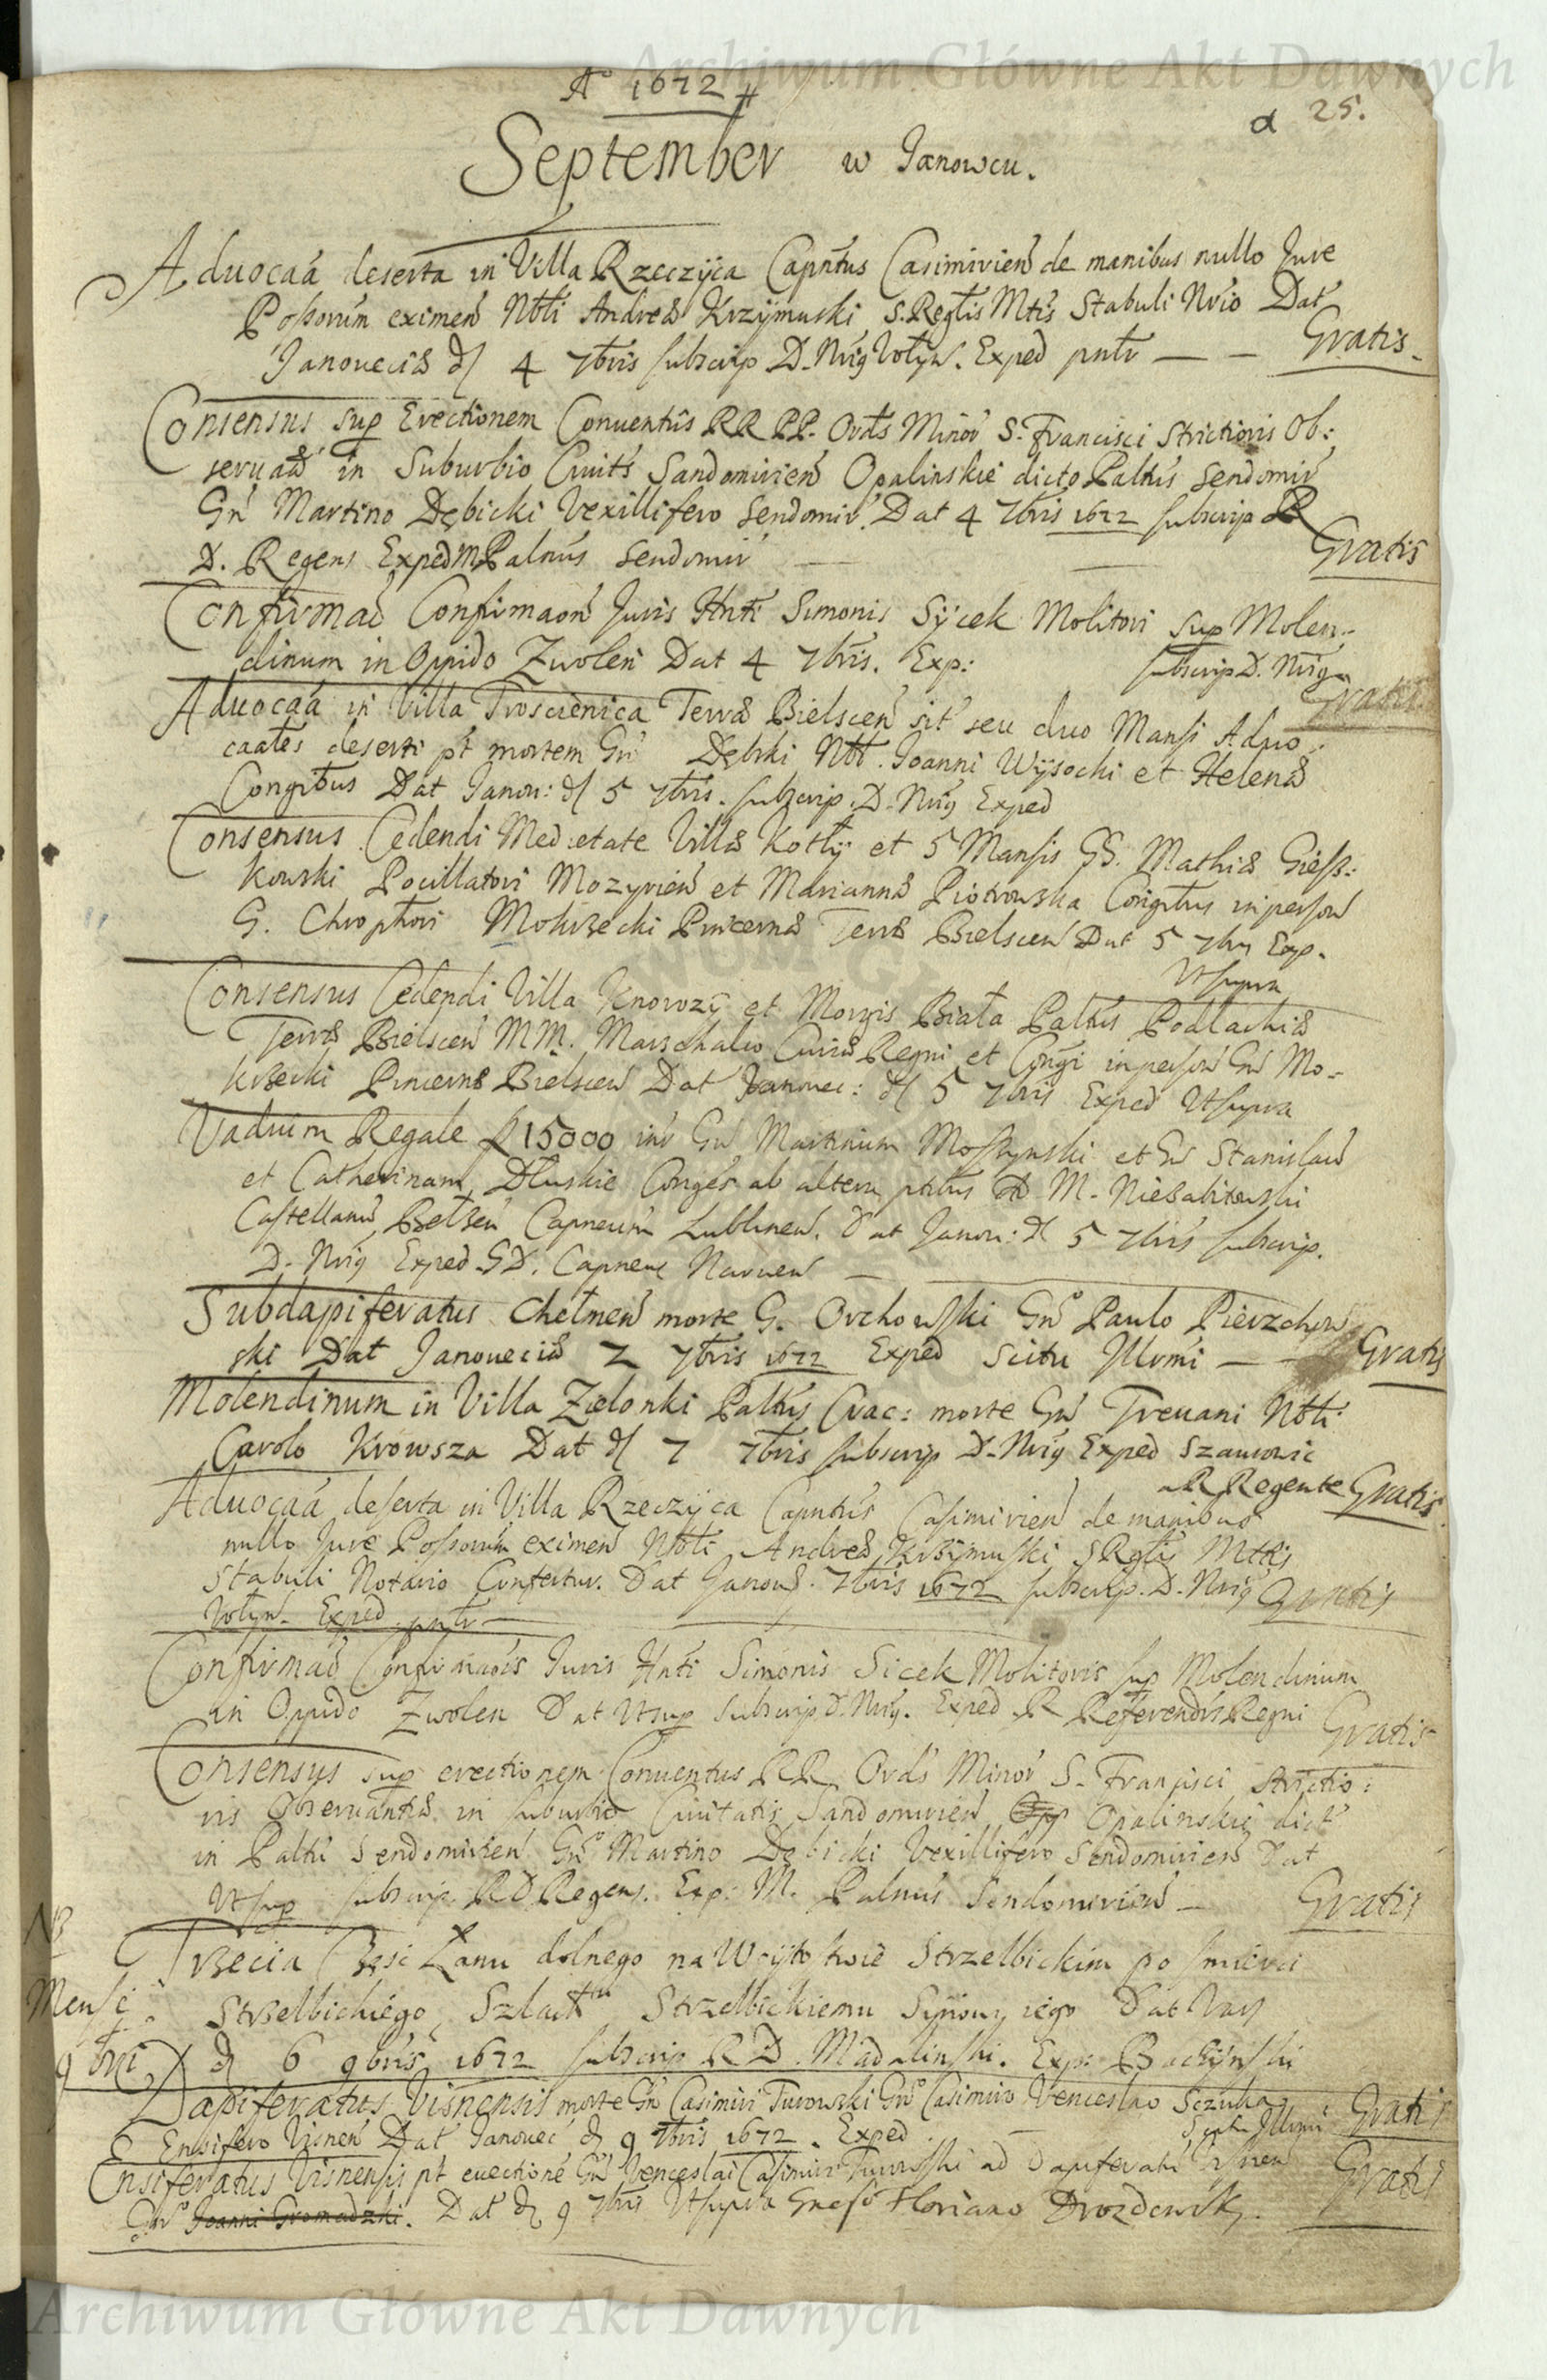 Archiwum Główne Akt Dawnych
Aº 1672
a 25.
September w Janowcu.
Aduocaã deserta in Villa Rzeczÿca Capñtus Casimirień de manibus nullo Jure
Possorum eximeñ Nbli Andreæ Krzÿmuski S. Reglis Mtis Stabuli Nrio Dat
Janoueciæ d 4 7bris subscrip D. Nrig Wołyń. Exped pntr — — Gratis.
Consensus sup Erectionem Conuentûs RR PP. Ords Minor S. Francisci Strictioris Ob:
seruaæ in Suburbio Ciuits Sandomirień Opalinskie dicto Paltûs Sendomir
Gñ Martino Dębicki Vexillifero Sendomir. Dat 4 7bris 1672 subscrip R
D. Regens Exped M Palnûs Sendomir — — Gratis
Confirmaõ Confirmaoñ Juris Hnti Simonis Sÿcek Molitori sup Molen-
dinum in Oppido Zwoleń Dat 4 7bris. Exp: subscrip D. Nrig
Gratis
Aduocaã in Villa Troscienica Terræ Bielsceń sit seu duo Mansi Aduo:
caales deserti pt mortem Gñ Dębski Nbl. Joanni Wÿsocki et Helenæ
Congibus Dat Janou: d 5 7bris. subscrip. D. Nrig Exped
Consensus Cedendi Medietate Villæ Kotłÿ et 5 Mansis GG. Mathiæ Giesz:
kowski Pocillatori Mozyrień et Mariannæ Piotrowska Congibus in person
G. Chrophori Mokrzecki Pincernæ Terræ Bielsceń Dat 5 7bris Exp.
Vtsupra
Consensus Cedendi Villa Knorozÿ et Morgis Biała Paltûs Podlachiæ
Terræ Bielsceń MM. Marschalco Curiæ Regni et Congi in person Gñ Mo-
krzecki Pincernæ Bielsceń Dat Janouec: d 5 7bris Exped Vtsupra
Vadium Regale 15000 intr Gñ Martinum Moszynski et Gñ Stanislaũ
et Catherinam Dłuskie Conges ab altera ptibus M. Niezabitowski
Castellanũ Bełzeń Capneum Lublineń. Dat Janou: d 5 7bris subscrip.
D. Nrig Exped GD. Capneus Narueń —
Subdapiferatus Chełmeń morte G. Orchowski Gñº Paulo Pierzchow
ski Dat Janoueciæ 7 7bris 1672 Exped Scitu Illrmi — — Gratis
Molendinum in Villa Zielonki Paltûs Crac: morte Gñ Treuani Nbli
Carolo Krowsza Dat d 7 7bris subscrip D. Nrig Exped Szamowic
R Regente Gratis
Aduocaã deserta in Villa Rzeczÿca Capntûs Casimirień de manibus
nullo Jure Possorum eximeñ Nbli Andreæ Krzÿmuski S Reglis Mttis
Stabuli Notario Confertur. Dat Janou. 7bris 1672 subscrip. D. Nrig Gratis
Wołyń. Exped pntr —
Confirmaõ Confirmaõis Juris Hnti Simonis Sicek Molitoris sup Molendinum
in Oppido Zwolen Dat Vtsup Subscrip D. Nrig. Exped R Referendrs Regni Gratis
Consensus sup erectionem Conuentus RR Ords Minor S. Francisci Strictio:
ris Obseruantiæ in suburbio Ciuitatis Sandomirień Opalinskie dict
in Paltũ Sendomirień Gñº Martino Dębicki Vexillifero Sendomirień Dat
Vtsup subscrip RD Regens. Exp: M. Palnûs Sendomirień — Gratis
NB
Trzecia Częsć Łanu dolnego na Woÿtostwie Strzelbickim po smierci
Mense
Strzelbickiego Szlacht Strzelbickiemu Sÿnowi iego Dat Vars
9bri
d 6 9bris 1672 subscrip RD Madalinski. Exp: Baczÿnski
Dapiferatus Visnensis morte Gñ Casimiri Turowski Gñº Casimiro Venceslao Sczuka
Ensifero Visneń Dat Janouec d 9 7bris 1672. Exped. Scitu Illrmi Gratis
Ensiferatus Visnensis pt euectionē Gñ Venceslai Casimiri Turowski ad Dapiferatũ Visneń Gratis
Gñº Joanni Gromadzki. Dat d 9 7bris Vtsupra Gneso Floriano Drozdewski.
Archiwum Główne Akt Dawnych